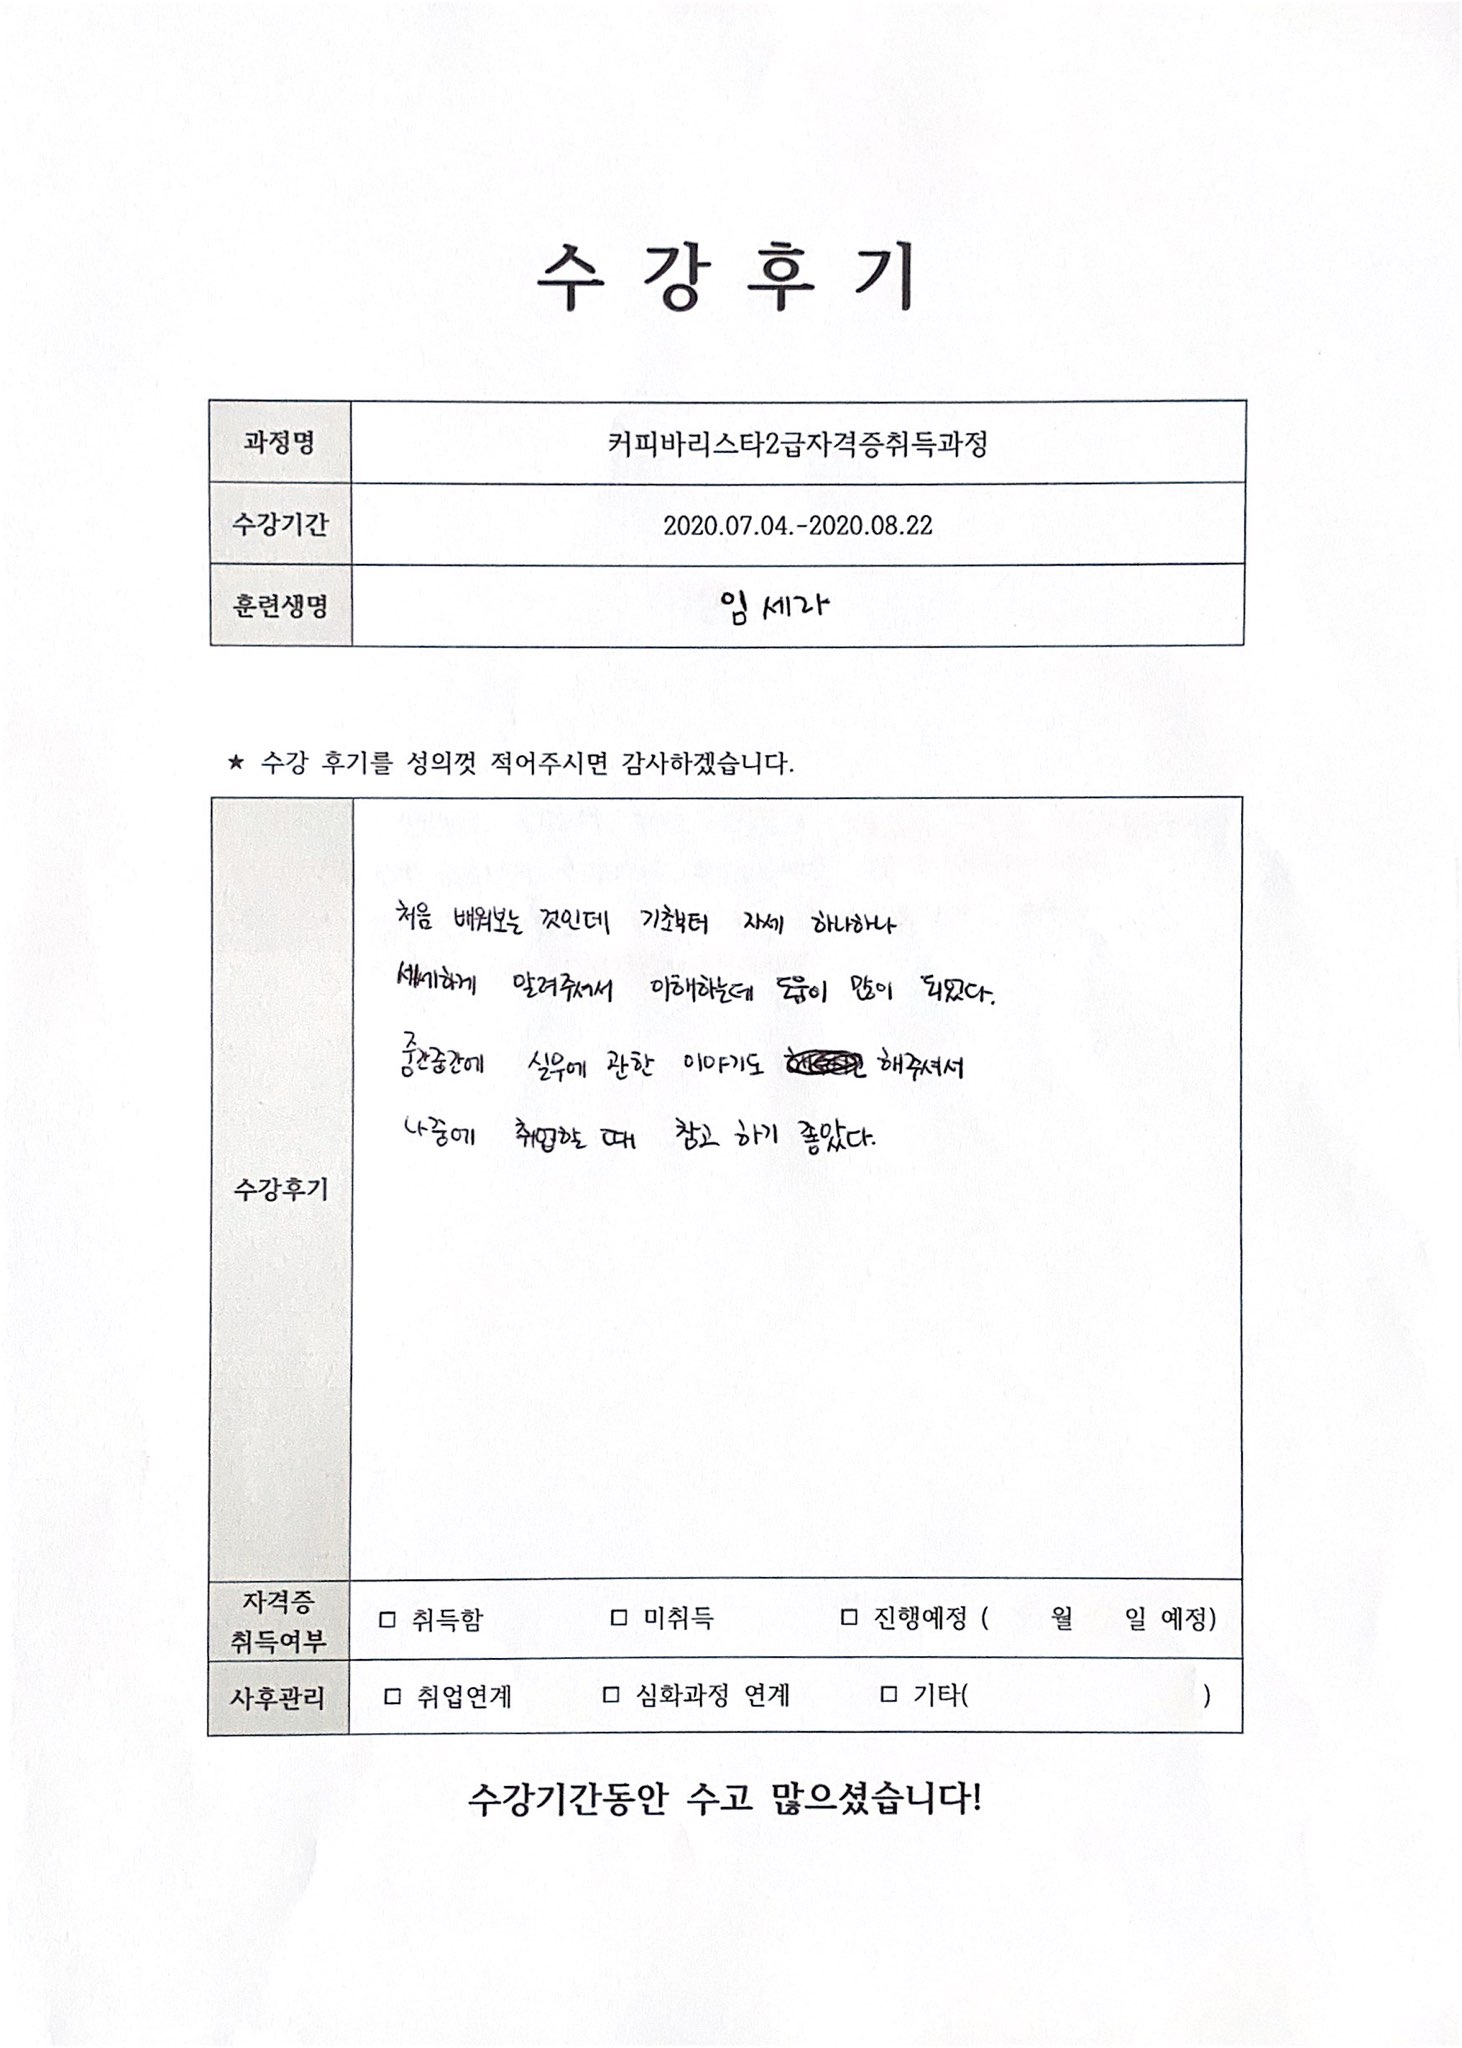 수 강 후 기
과정명 커피바리스타2급자격증취득과정
수강기간 2020.07.04.-2020.08.22
훈련생명 임세라
★ 수강 후기를 성의껏 적어주시면 감사하겠습니다.
처음 배워보는 것인데 기초부터 자세 하나하나
세세하게 알려주셔서 이해하는데 도움이 많이 되었다.
중간중간에 실무에 관한 이야기도 해주셔서
나중에 취업할 때 참고 하기 좋았다.
수강후기
자격증
취득여부 □ 취득함 □ 미취득 □ 진행예정 ( 월 일 예정)
사후관리 □ 취업연계 □ 심화과정 연계 □ 기타( )
수강기간동안 수고 많으셨습니다!